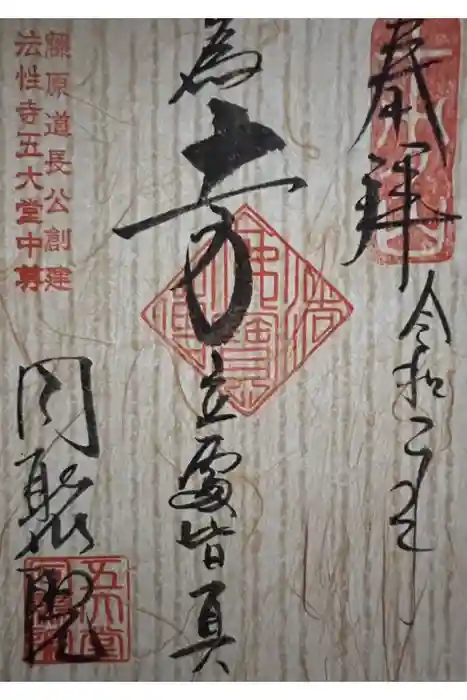 奉拝
令和二年
為
立處皆真
藤原道長公創建
法性寺五大堂中尊
同聚院